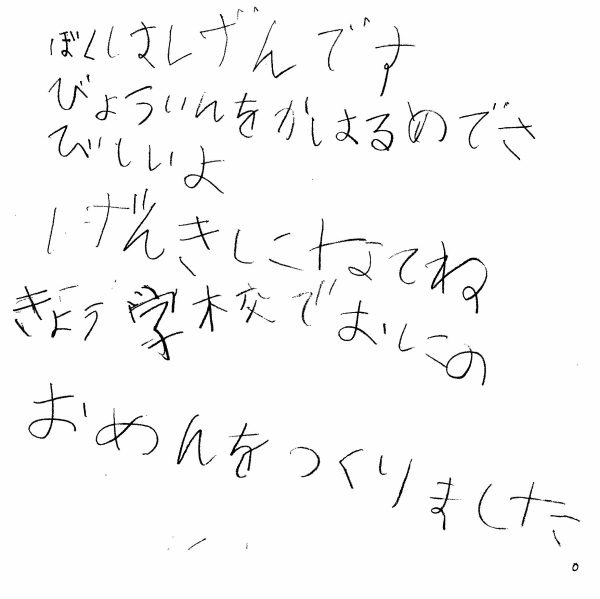 ぼくはげんです
びょういんをかはるめでさ
びしいよ
げんきになてね
きょう学校でおにの
おめんをつくりました。